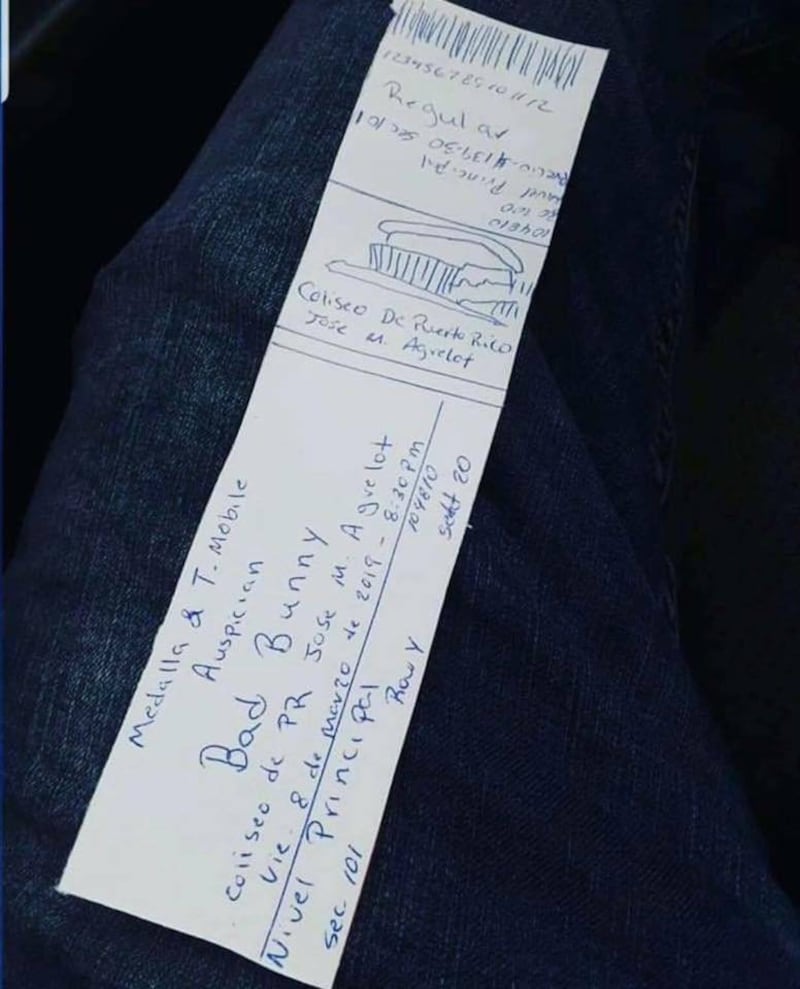 12345678910 11 12
Regular
Precio-$139.30 Sec 101
Nivel Principal
104810
Coliseo De Puerto Rico
Jose M. Agrelot
Medalla & T-Mobile
Auspician
Bad Bunny
Coliseo de PR Jose M. Agrelot
Vie. 8 de marzo de 2019 - 8:30 Pm
Nivel Principal 104810
Sec 101 Row Y Seat 20